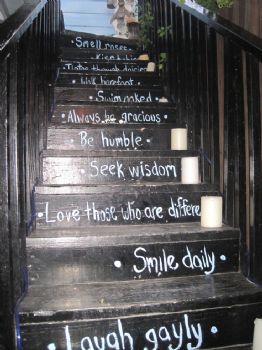 Smell roses
Kiss babies
Tiptoe through daisies
Walk barefoot
Swim naked
Always be gracious
• Be humble •
• Seek wisdom
• Love those who are differe
• Smile daily •
• Laugh gayly •